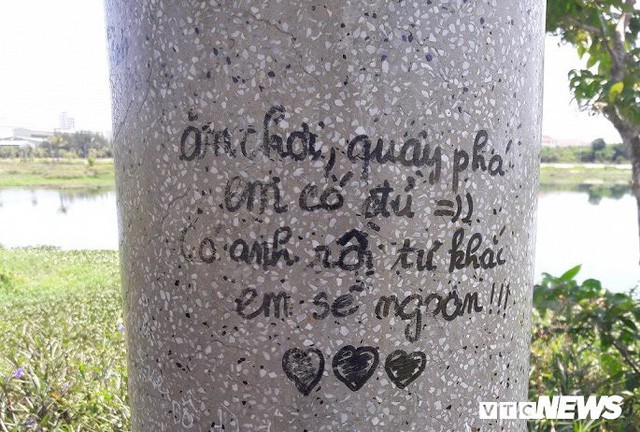 ăn chơi, quậy phá
em có đủ =))
Có anh rồi tự khắc
em sẽ ngoan!!!
VTC NEWS